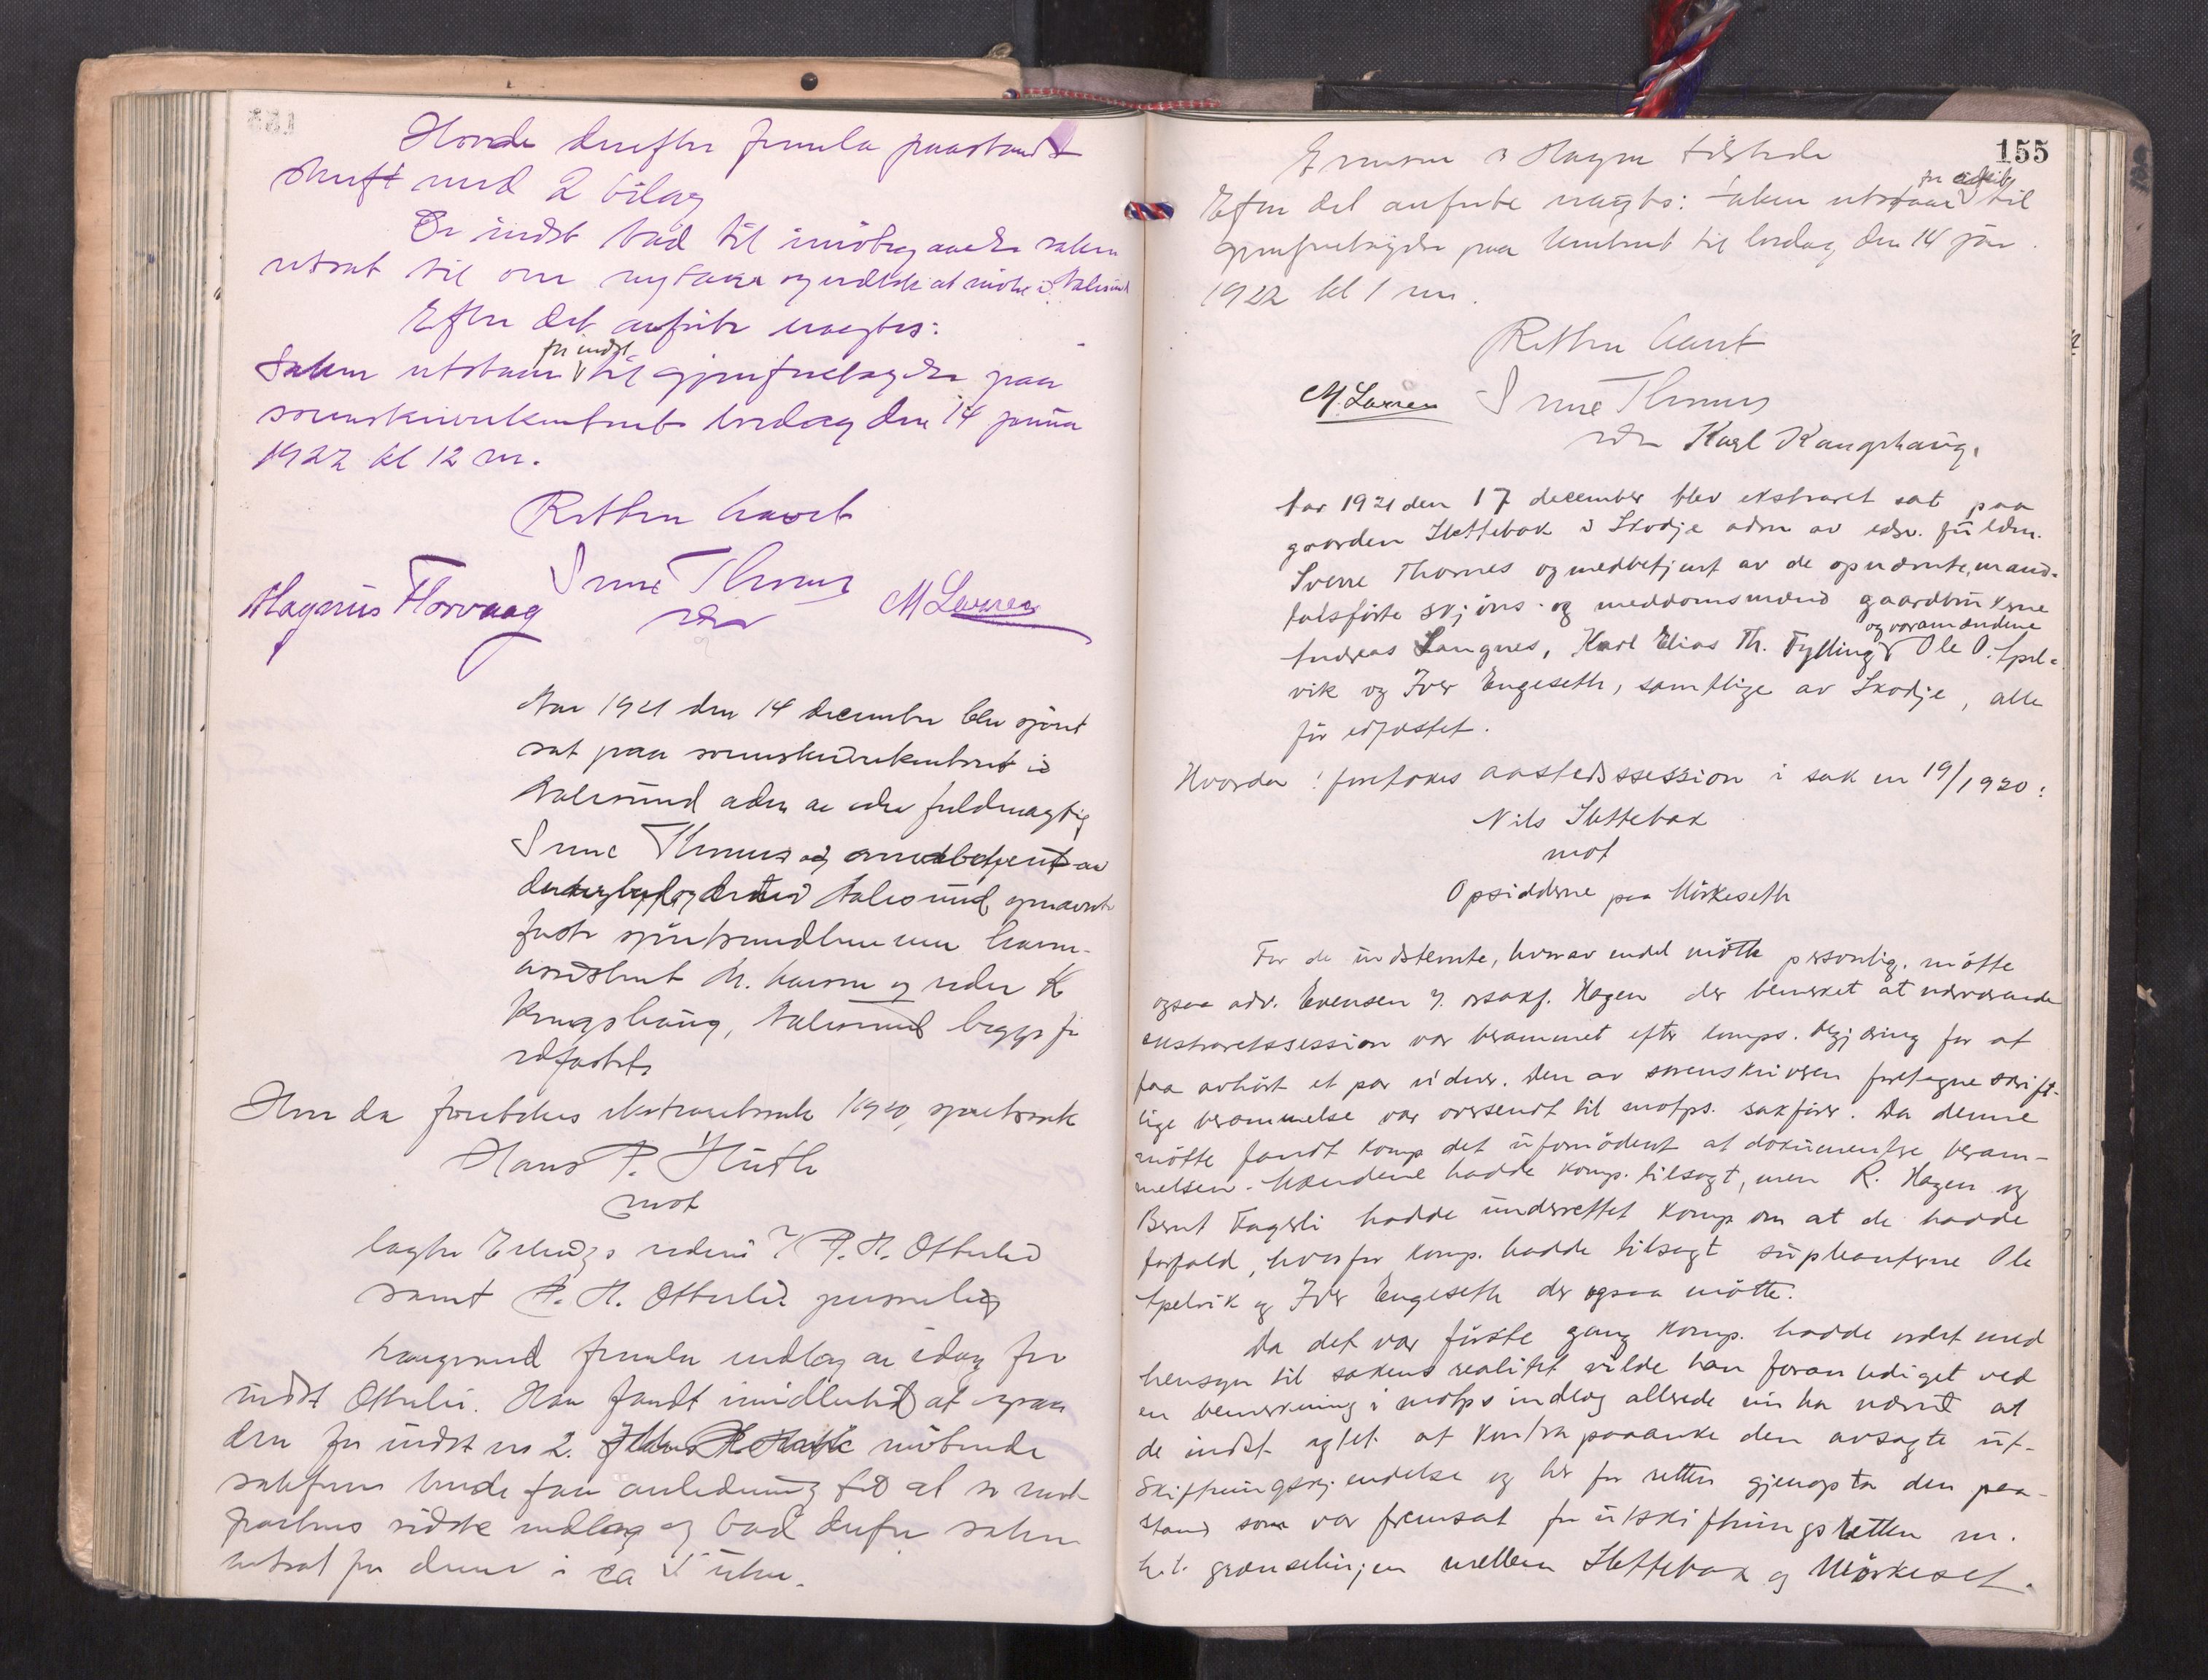 Hovde derefter fremla paastand
skrift med 2 bilag
For indst bad til imøtegaaelse saken
utsat til over nytaar og vedtok at møte i Aalesund
Efter det anførte vaagtes:
Saken utstaar for indst til gjenforetagelse paa
sorenskriverkontoret lørdag den 14 januar
1922 kl 12 m.
Retten hævet
Sverre Thornes
Magnus Florvaag
edsv
M Larsen
Aar 1921 den 14 december blev sjøret
sat paa sorenskriverkontoret i
Aalesund adm av edsv fuldmægtig
Sverre Thornes og medbetjent av
de Aalesund opnævnte
faste sjøretsmedlemmer havne-
assistent M. Larsen og reder K
Kongshaug, Aalesund begge før
edfæstet.
Hvor da foretokes ekstraretssak 1/1920, sjøretssak
Hans P. Huth
mot
lagter Erling's rederi v/ P. H. Otterlei
samt P. H. Otterlei personlig
Langesund fremla indlæg av idag for
indst Otterlei. Han fandt imidlertid at ogsaa
den for indst no 2. møtende
sakfører burde faa anledning til at se mot-
partens sidste indlæg og bad derfor saken
utsat for denne i ca 5 uker.
155
Evensen & Hagen tilstede
Efter det anførte vaagtes: Saken utstaar til
gjenforetagelse paa kontoret til lørdag den 14 jan.
1922 kl 1 em.
Retten hævet
M. Larsen Sverre Thornes
edsv Karl Kongshaug.
Aar 1921 den 17 december blev ekstraret sat paa
gaarden Slettebak i Skodje adm av edsv. fuldm.
Sverre Thornes og medbetjent av de opnævnte, mand-
talsførte skjøns- og meddomsmænd gaardbrukerne
Andreas Langnes, Karl Elias Th. Fylling og varamændene Ole O. Spel-
vik og Iver Engeseth, samtlige av Skodje, alle
før edfæstet.
Hvorda: foretokes aastedssession i sak nr 19/1920:
Nils Slettebak
mot
Opsidderne paa Mörkeseth
For de indstevnte, hvorav endel møtte personlig, møtte
ogsaa adv. Evensen v. orsakf. Hagen der bemerket at nærværende
ekstraretssession var berammet efter komps. begjæring for at
faa avhört et par vidner. Den av sorenskriveren foretagne skrift-
lige berammelse var oversendt til motps. sakförer. Da denne
møtte fandt komp det ufornödent at dokumentere beram-
melsen. Mændene hadde komp. tilsagt, men R. Hagen og
Bernt Fagerli hadde underrettet komp om at de hadde
forfald, hvorfor komp. hadde tilsagt supleanterne Ole
Spelvik og Iver Engeseth der ogsaa møtte.
Da det var förste gang komp. hadde ordet med
hensyn til sakens realitet vilde han foranlediget ved
en bemerkning i motps indlæg allerede nu ha nævnt at
de indst. agtet at kontrapaaanke den avsagte ut-
skiftningskjendelse og her for retten gjenopta den paa-
stand som var fremsat for utskiftningsretten m.
h. t. grænselinjen mellem Slettebak og Mörkeset.